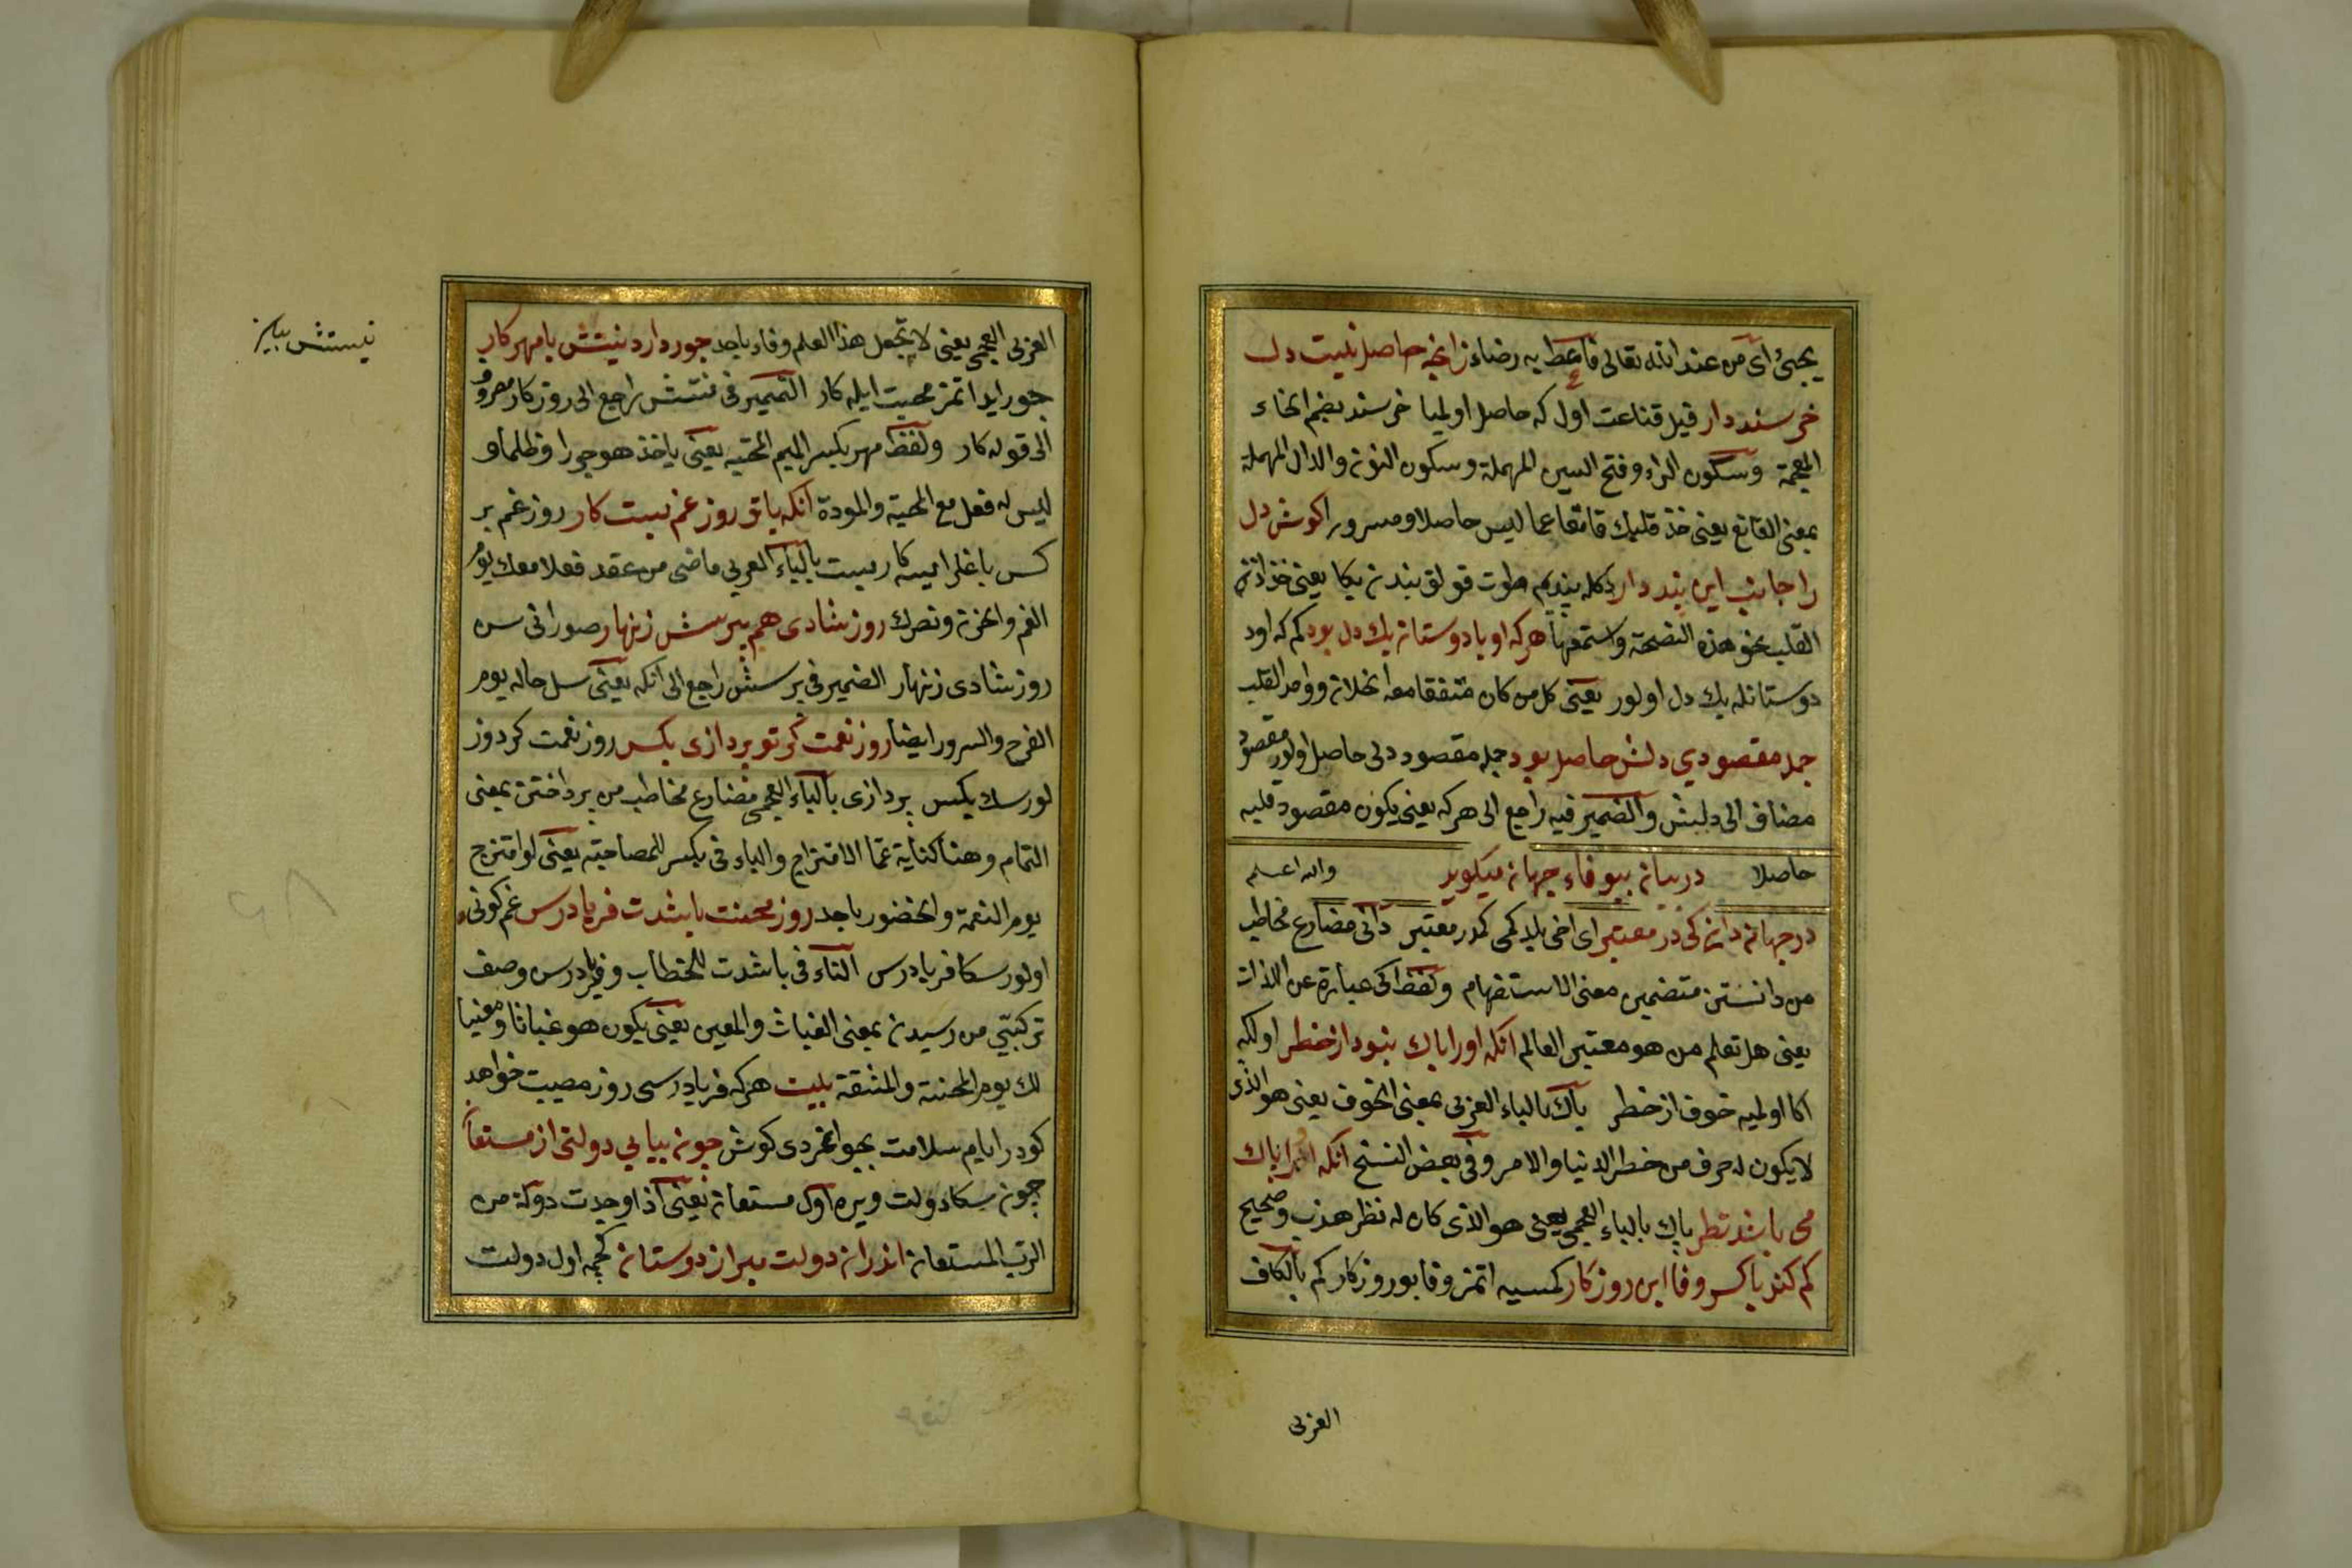 يجيء اى من عند الله تعالى فاعط به رضاء زانچه حاصل نيست دل
خرسند دار قيل قناعت اول كه حاصل اولميا خرسند بضم الخاء
المعجمة وسكون الراء وفتح السين المهملة وسكون النون والدال المهملة
بمعنى القانع يعنى خذ قلبك قانعا عما ليس حاصلا ومسرورا كوش دل
را جانب اين پند دار دكله پندم طوت قولق بندن يكا يعنى خذ اذن
القلب نحو هذه النصحة واستمعها هركه او با دوستان يك دل بود كم كه اود
دوستانله يك دل اولور يعنى كل من كان متفقا مع الخلان وواحد القلب
جمله مقصودي دلش حاصل بود جمله مقصود دلى حاصل اولور مقصود
مضاف الى دلبش والضمير فيه راجع الى هركه يعنى يكون مقصود قلبه
حاصلا در بيان بيوفاء جهان ميكويد والله اعلم
در جهان دانى كى در معتبر اى اخى بلدكمى كمدر معتبر دانى مضارع مخاطب
من دانستن متضمن معنى الاستفهام ولفظ كى عبارة عن الذات
يعنى هل تعلم من هو معتبر العالم انكه اورا باك نبود از خطر اولكه
اكا اولميه خوف از خطر باك بالباء العربى بمعنى الخوف يعنى هو الذى
لا يكون له حرف من خطر الدنيا والامر وفى بعض النسخ انكه اورا باك
مى باشد نظر پاك بالباء العجمى يعنى هو الذى كان له نظر هذب وصحيح
كم كند با كس وفا اين روزكار كمسيه اتمز وفا بو روزكار كم بالكاف
العربى
العربى العجمى يعنى لا تجعل هذا العلم وفاء باحد جور دارد نيستش با مهر كار
جور ايدر اتمز محبت ايله كار الضمير فى نيستش راجع الى روزكار مصروف
الى قوله كار ولفظ مهر بكسر الميم المحبه يعنى ياخذ هو جورا وظلما و
ليس له فعل مع المحبة والمودة انكه با تو روز غم بست كار روز غم بر
كس باغلرايسه كار ببست بالباء العربى ماضى من عقد فعلا معك يوم
الغم والحزن ونصرك روز شادى هم بپرسش زنهار صور انى سن
روز شادى زنهار الضمير فى پرسش راجع الى انكه يعنى سل حاله يوم
الفرح والسرور ايضا روز نعمت كر تو پردازى بكس روز نعمت كر دوز
لورسك بكس پردازى بالباء العجمى مضارع مخاطب من پرداختن بمعنى
التمام وهنا كناية عما الامتزاج والباء فى بكس للمصاحبه يعنى لو امتزج
يوم النعمة والحضور باحد روز محنت باشدت فرياد رس غم كونى
اولور سكا فرياد رس التاء فى باشدت للخطاب وفرياد رس وصف
تركيبى من رسيدن بمعنى الغياث والمعين يعنى يكون هو غياثا ومعينا
لك يوم المحنة والمشقة بيت هركه فرياد رسى روز مصيبت خواهد
كو در ايام سلامت بجوانمردى كوش چون بيابى دولتى از مستعان
چون سكا دولت ويره اول مستعان يعنى اذا وجدت دولة من
الرب المستعان اندران دولت مبر از دوستان كچمه اول دولت
نيستش بباير